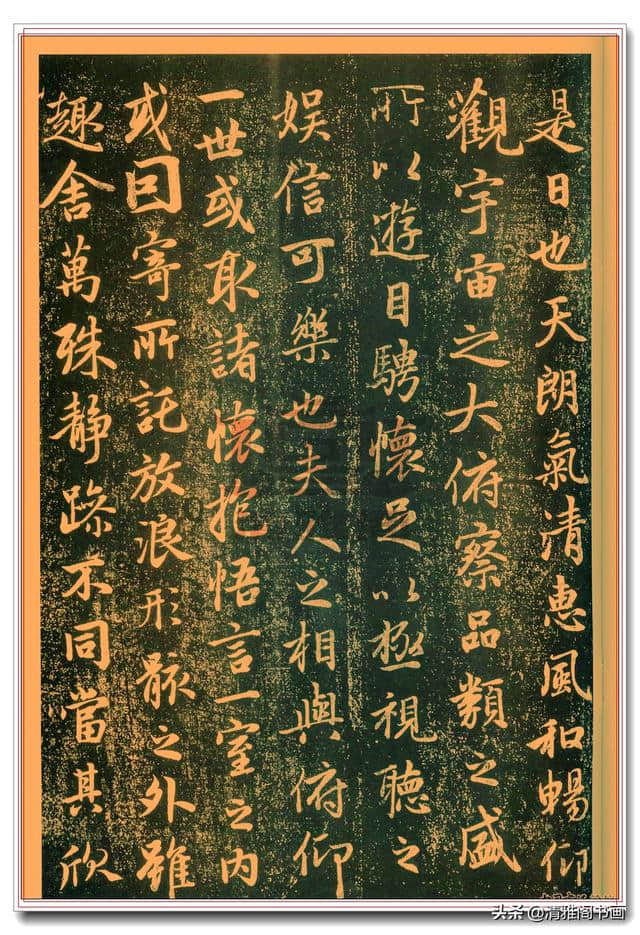 是日也天朗氣清惠風和暢仰
觀宇宙之大俯察品類之盛
所以遊目騁懷足以極視聽之
娛信可樂也夫人之相與俯仰
一世或取諸懷抱悟言一室之內
或因寄所託放浪形骸之外雖
趣舍萬殊靜躁不同當其欣
头条 @清雅阁书画